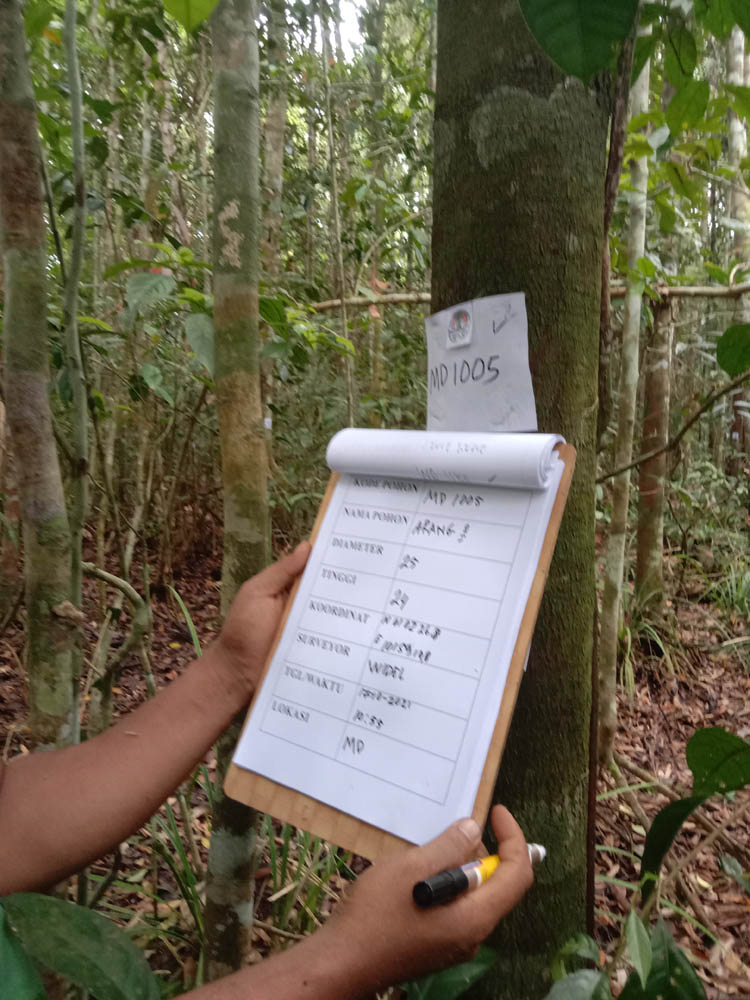 MD1005
KODE POHON MD 1005
NAMA POHON ARANG 2
DIAMETER 25
TINGGI 24
KOORDINAT
SURVEYOR WIDEL
TGL/WAKTU
10:55
LOKASI MD